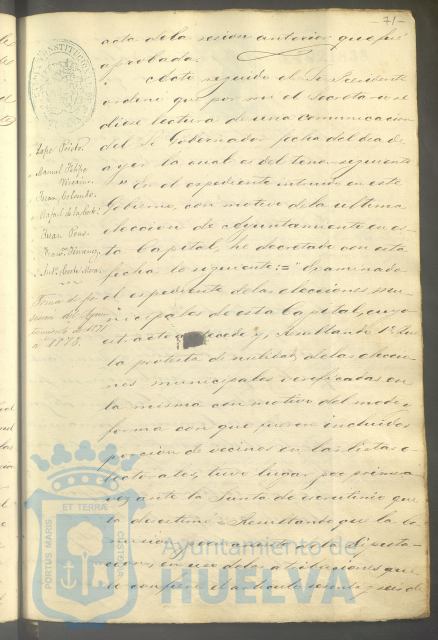 -71-
acta de la sesion anterior que fué
aprobada.
Acto seguido el Sr. Presidente
ordenó que por mi el Secretario se
diese lectura de una comunicacion
del Sr. Gobernador fecha del dia de
ayer la cual es del tenor siguiente
"En el expediente instruido en este
Gobierno, con motivo de la ultima
eleccion de ayuntamiento en es-
ta Capital, he decretado con esta
fecha lo siguiente:= "Examinado
el expediente de las elecciones mu-
nicipales de esta Capital, cuyo
estracto precede y, Resultando 1º Que
la protesta de nulidad de las eleccio-
nes municipales verificadas en
la misma con motivo del modo y
forma con que fueron incluidos
porcion de vecinos en las listas e-
lectorales, tuvo lugar por primera
vez ante la Junta de escrutinio que
la desestimó. Resultando que la Co-
mision
en uso de las atribuciones que
le confiere el articulo
Lope Prieto.
Manuel Felipe
Juan Colombo.
Rafael de la
Juan Pons.
Franco.
Anto.
Toma de po
sesion del Ayun
tamiento de 1871
a 1873.
PORTUS MARIS
ET TERRÆ
CUSTODIA
Ayuntamiento de
HUELVA